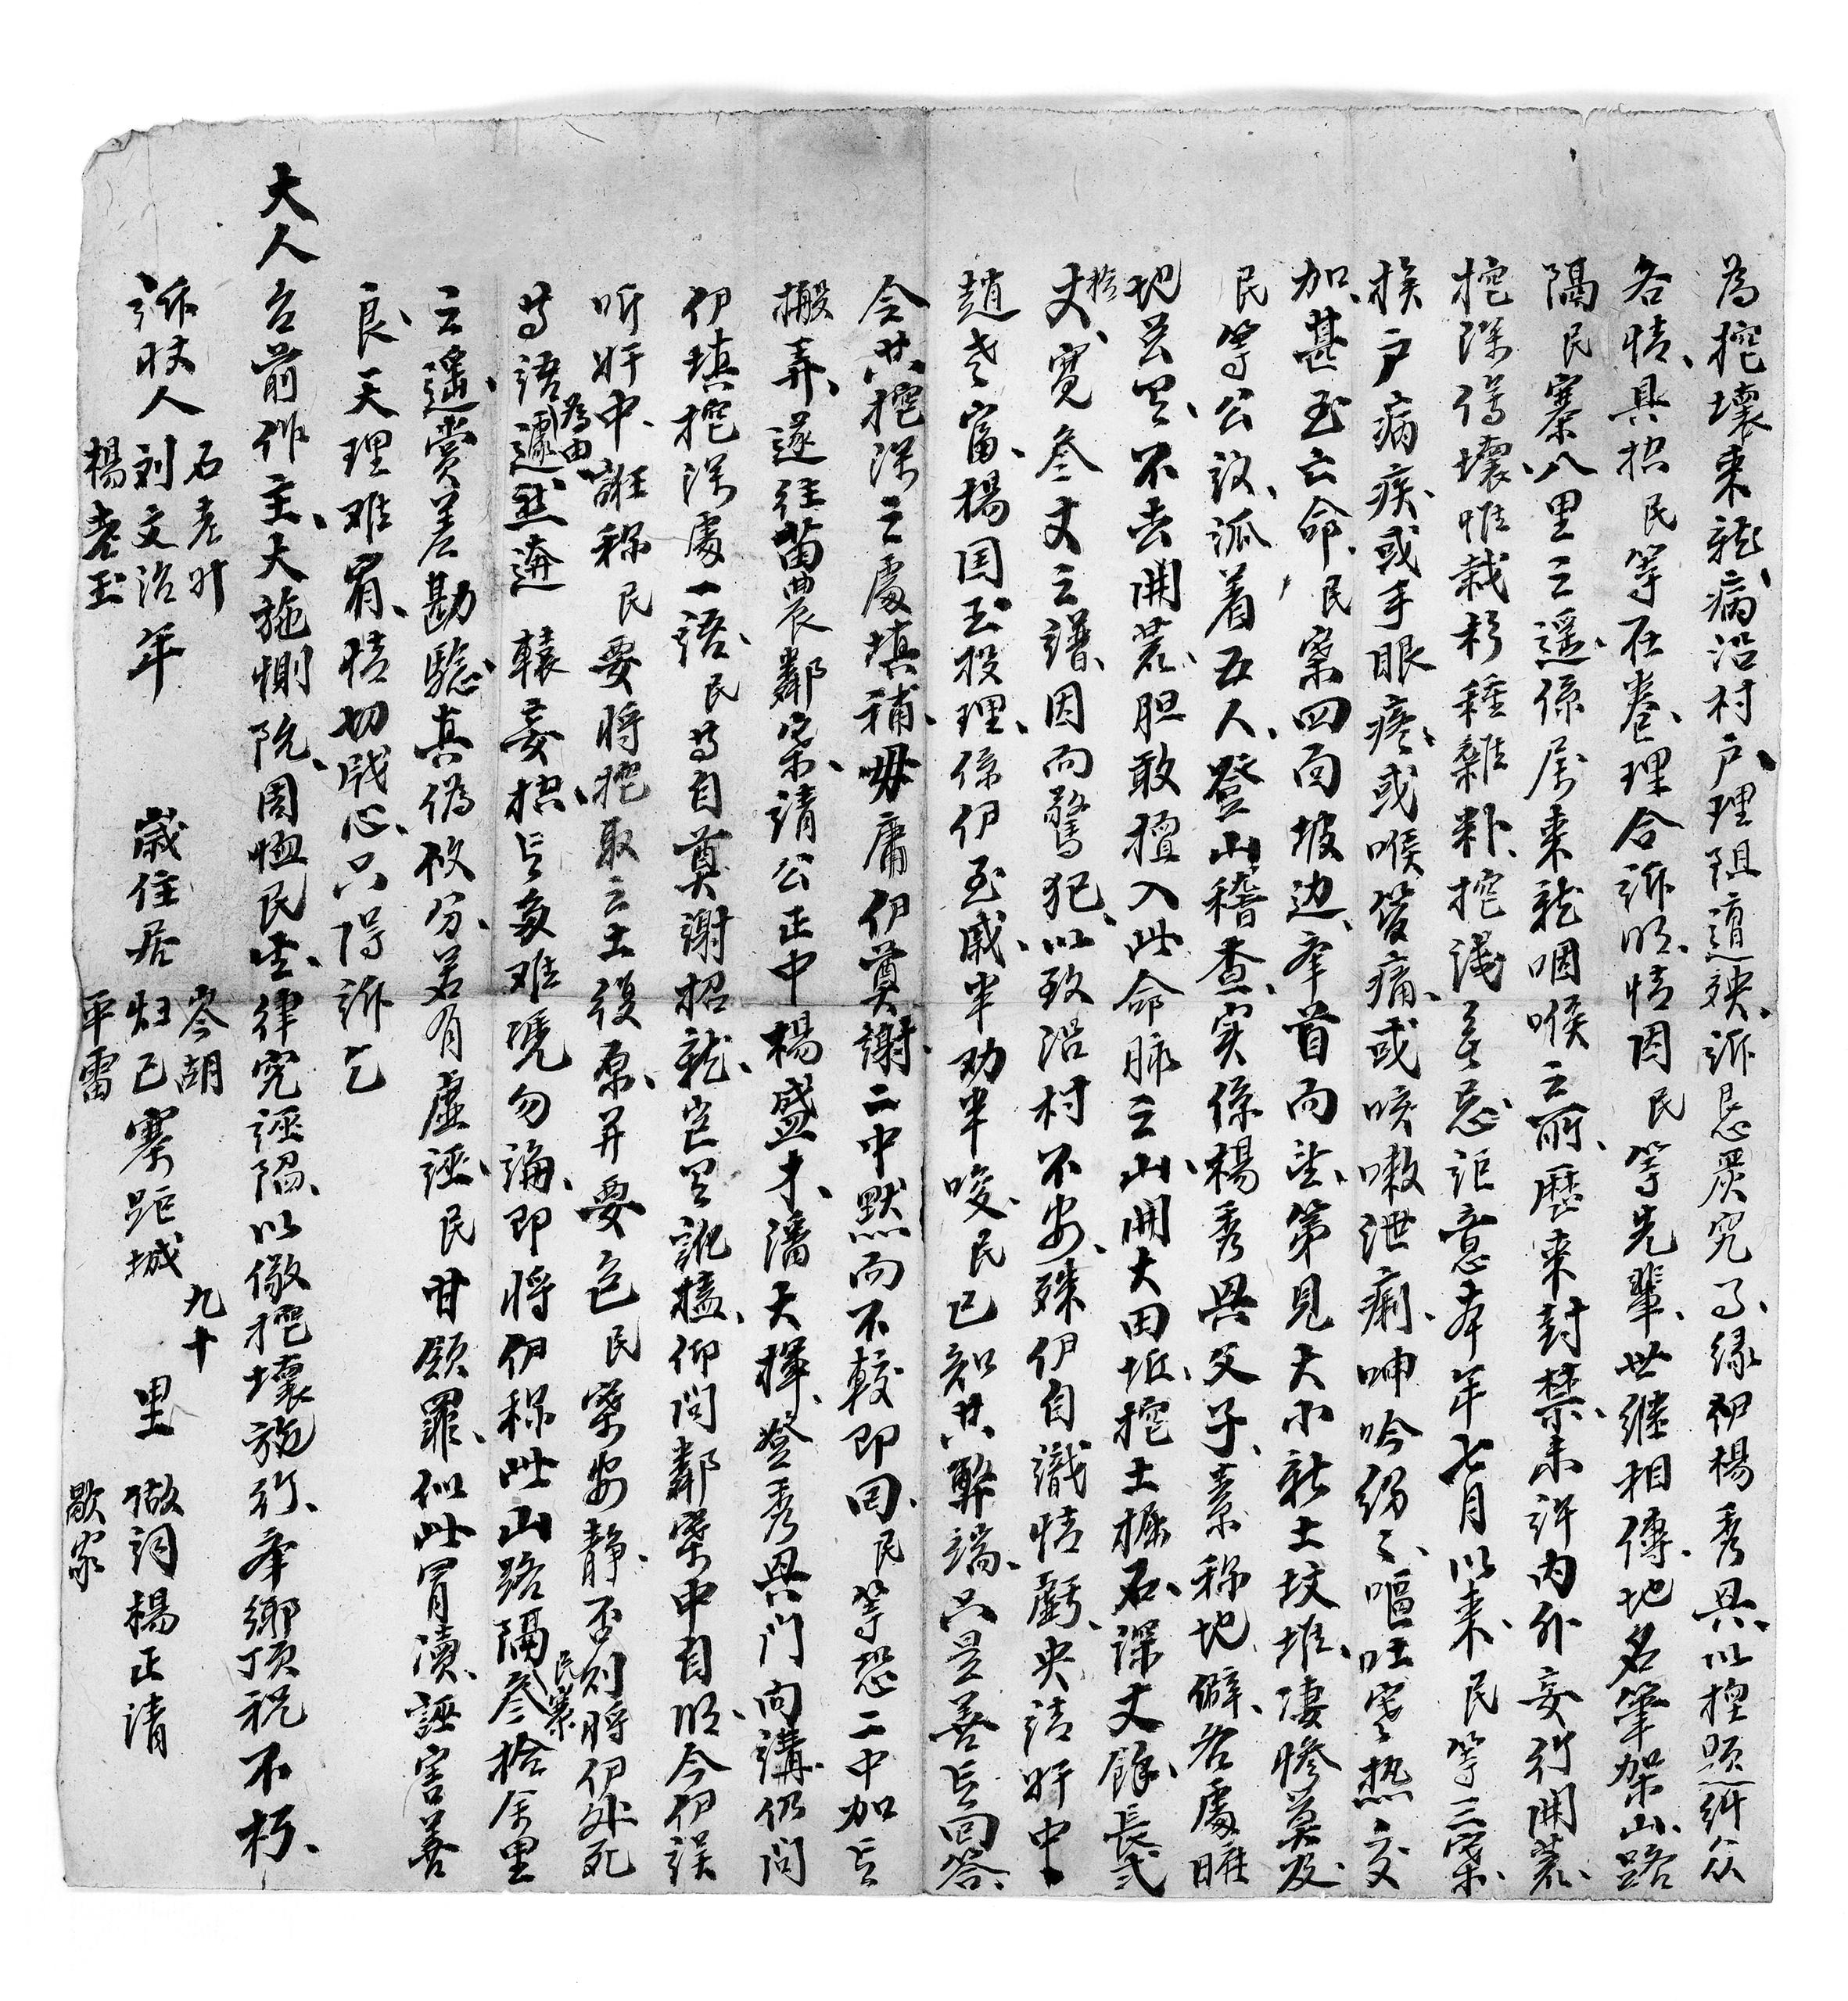 為挖壞来龍病沿村户理阻遭殃訴恳嚴究事緣初楊秀興以控題糾众
各情具控民等在卷理合訴明情因民等先輩世继相傳地名筆架山路
隔民寨八里之遥係属来龍咽喉之所歷来封禁未許内外妄行開荒
挖深傷壞惟栽杉種雜粆挖淺無忌詎意本年七月以来民等三寨
挨户病疾或手眼疼或喉發痛或咳嗽泄痢呻吟紛紛嘔吐寒热交
加甚至亡命民寨四向坡边牽首而望第見大小新土坟堆凄惨莫及
民等公议派着五人登山稽查实係楊秀興父子素称地僻各處曠
地甚男不去開荒胆敢擅入此命脉之山開大田坵挖土掘石深丈餘長弍
拾丈寛叁丈之譜因而驚犯以致沿村不安殊伊自識情虧央請奸中
趙老富楊国玉投理係伊至戚半劝半唆民已知其弊端只是善言回答
令其挖深之處填補毋庸伊奠謝二中默而不較即回民等恐二中加言
搬弄遂往苗農鄰寨請公正中楊盛才潘天揮登秀興门向講仍问
伊填挖深處一語民等自奠謝招龍豈男訛搕仰问鄰寨中自明今伊误
听奸中誑称民要将挖取之土復原并要包民寨安静否则将伊处死
等語為由遽然逩轅妄控言多难凴勿論即将伊称此山路隔民寨叁拾余里
之遥賞差勘騐真偽攸分若有虚诬民甘領罪似此冒瀆誣害善
良天理难宥情切戕心只得訴乞
大人台前作主大施惻隐周恤民生律究誣陥以儆挖壞施行牽鄉頂祝不朽
訴狀人 石老叶 刘文治 楊老玉 年 歲住居 岑胡 归己 平雷 寨距城 九十 里 做詞楊正清 歇家